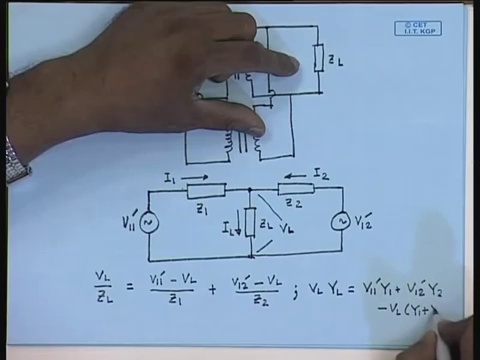 © CET
I.I.T. KGP
Z_L
I_1 → ← I_2
Z_1 Z_2
V_11' I_L ↓ Z_L V_L V_12'
V_L/Z_L = (V_11' - V_L)/Z_1 + (V_12' - V_L)/Z_2 ; V_L Y_L = V_11' Y_1 + V_12' Y_2
- V_L (Y_1 +